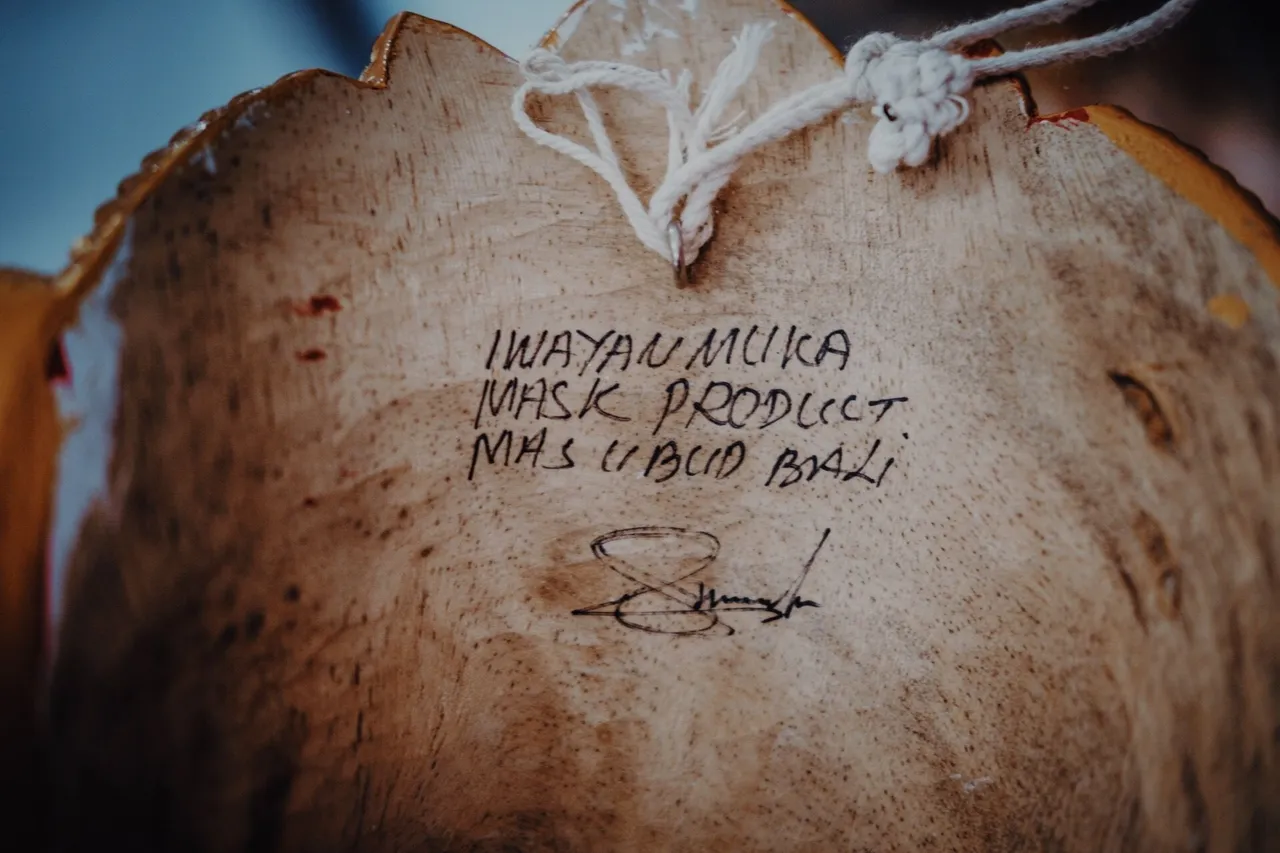 IWAYAN MUKA
MASK PRODUCT
MAS UBUD BALi